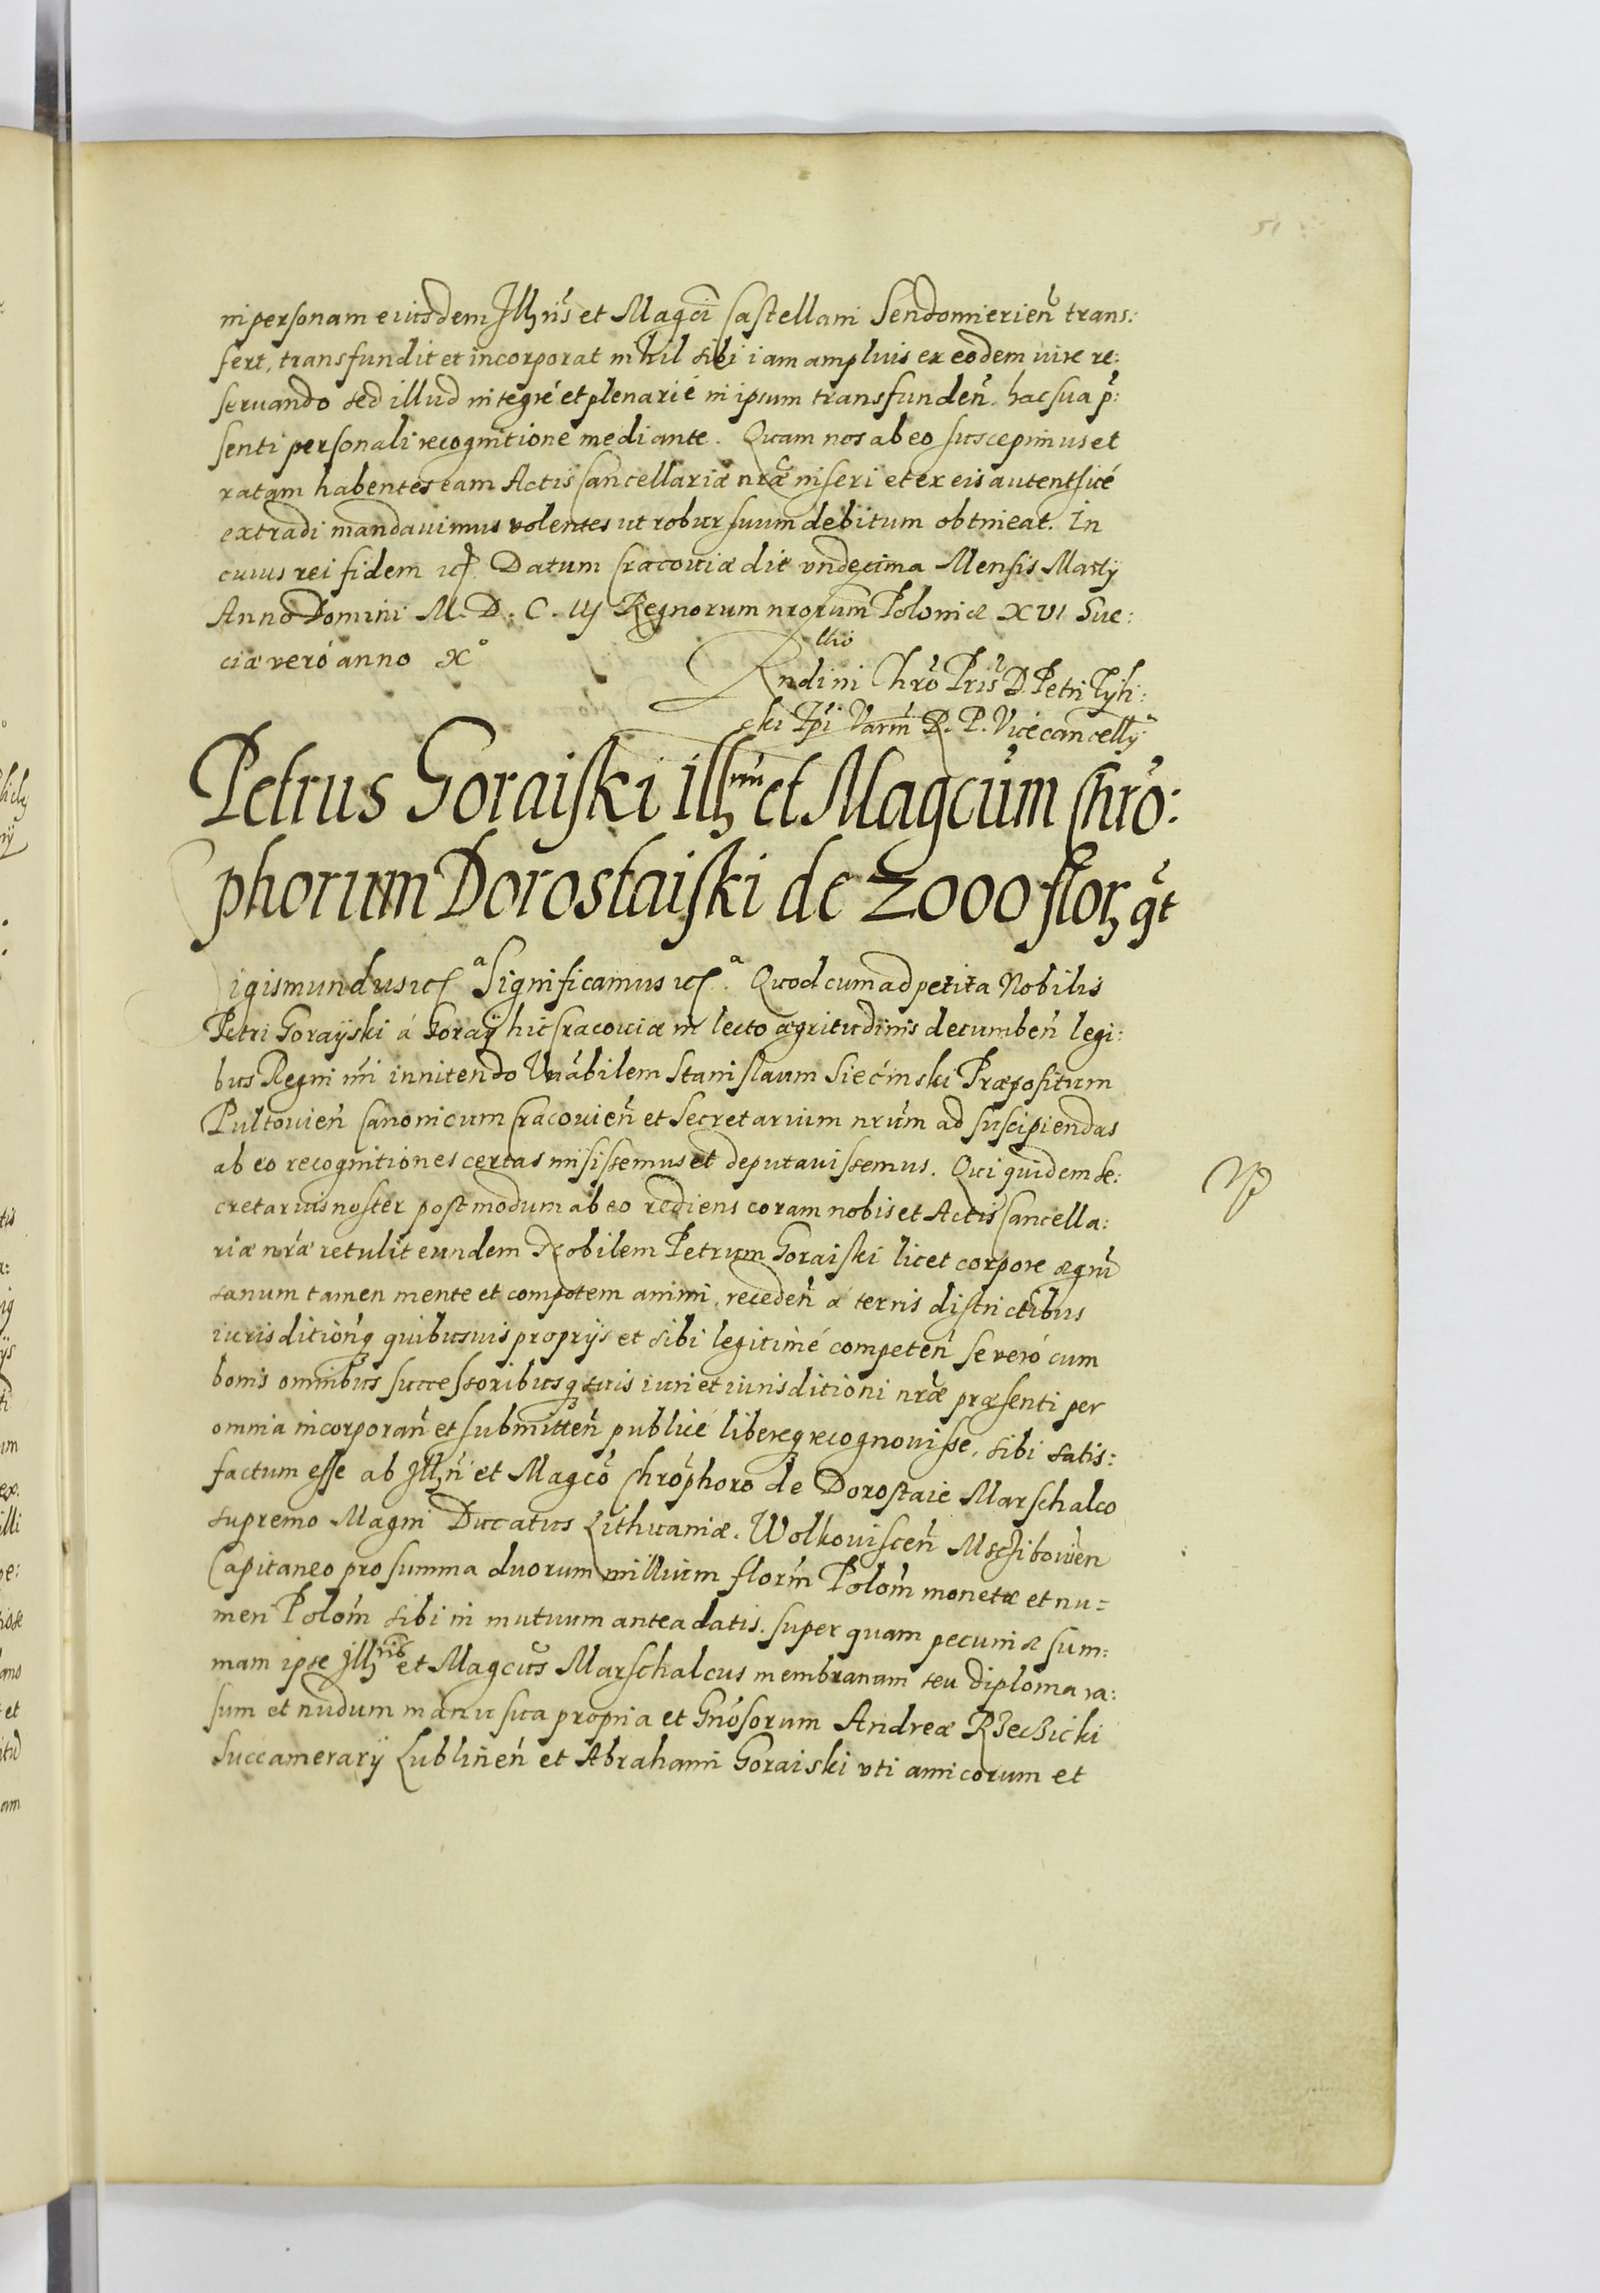 51
in personam eiusdem Illris et Magci Castellani Sendomirien̄ trans:
fert, transfundit et incorporat nihil sibi iam amplius ex eodem iure re:
seruando sed illud integré et plenarié in ipsum transfunden̄. hac sua p̄:
senti personali recognitione mediante. Quam nos ab eo suscepimus et
ratam habentes eam Actis Cancellariæ nræ inseri et ex eis autenthicé
extradi mandauimus volentes ut robur suum debitum obtineat. In
cuius rei fidem etc. Datum Cracouiæ die vndecima Mensis Martÿ
Anno Domini M. D. C. IIJ Regnorum nrorum Poloniæ XVI Sue:
ciæ veró anno X°
Rndi in Chro Pris D. Petri Tyli:
cki Epi Varm̄ R. P. Vicecancellÿ
Petrus Goraiski Illm et Magcum Chro:
phorum Dorostaiski de 2000 flor qt
igismundus etc^a Significamus etc^a. Quod cum ad petita Nobilis
Petri Goraÿski á Goraÿ hic Cracouiæ in lecto ægritudinis decumben̄ legi:
bus Regni nri innitendo Vnabilem Stanislaum Siecinski Præpositum
Pultouien̄ Canonicum Cracouien̄ et Secretarium nrum ad suscipiendas
ab eo recognitiones certas misissemus et deputauissemus. Qui quidem Se:
cretarius noster postmodum ab eo rediens coram nobis et Actis Cancella:
riæ nræ retulit eundem Nobilem Petrum Goraiski licet corpore ægrū
sanum tamen mente et compotem animi, receden̄ a terris districtibus
iurisdition̄q quibusuis proprÿs et sibi legitimé competen̄ se veró cum
bonis omnibus successoribusq suis iuri et iurisditioni nræ præsenti per
omnia incorporan̄ et submitten̄ publicé libereq recognouisse, sibi satis:
factum esse ab Illri et Magco Chrophoro de Dorostaie Marschalco
supremo Magni Ducatus Lithuaniæ. Wolkouiscen̄ Mscibouien̄
Capitaneo pro summa duorum millium florm Polom monetæ et nu=
meri Polom sibi in mutuum antea datis. super quam pecuniæ sum:
mam ipse Illris et Magcus Marschalcus membranam seu diploma ra:
sum et nudum manu sua propria et Gnosorum Andreæ Rzeczicki
Succamerarÿ Lublinen̄ et Abrahami Goraiski vti amicorum et